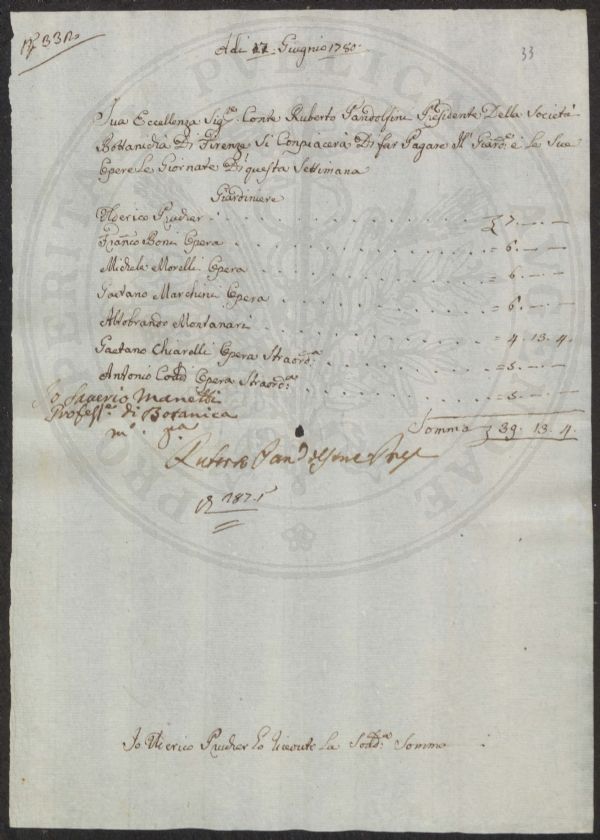 33
Adi 17. Giugnio 1780.
Sua Eccellenza Sig.re Conte Ruberto Pandolfini Presidente Della Società
Bottanicha Di Firenze Si Conpiacerà Di far Pagare Al Giard.re e Le Sue
Opere Le Giornate Di questa Settimana
Giardiniere
Ulderico Prucher . . . . £ 7. — . —
Franc.o Boni Opera . . . . = 6. — . —
Michele Morelli Opera . . . . = 6. — . —
Gaetano Marchini Opera . . . . = 6. — . —
Altobrando Montanari . . . . = 4. 13. 4.
Gaetano Chiarelli Opera Straord.a . . . . = 5. — . —
Antonio Opera Straord.a . . . . = 5. — . —
Somma £ 39. 13. 4.
Io Saverio Manetti
Profess.re di Botanica
m.o p.a
Ruberto Pandolfini Pres.
Io Ulderico Prucher ho riceuto La Sod.a Somma
PROSPERITATI PUBLICAE